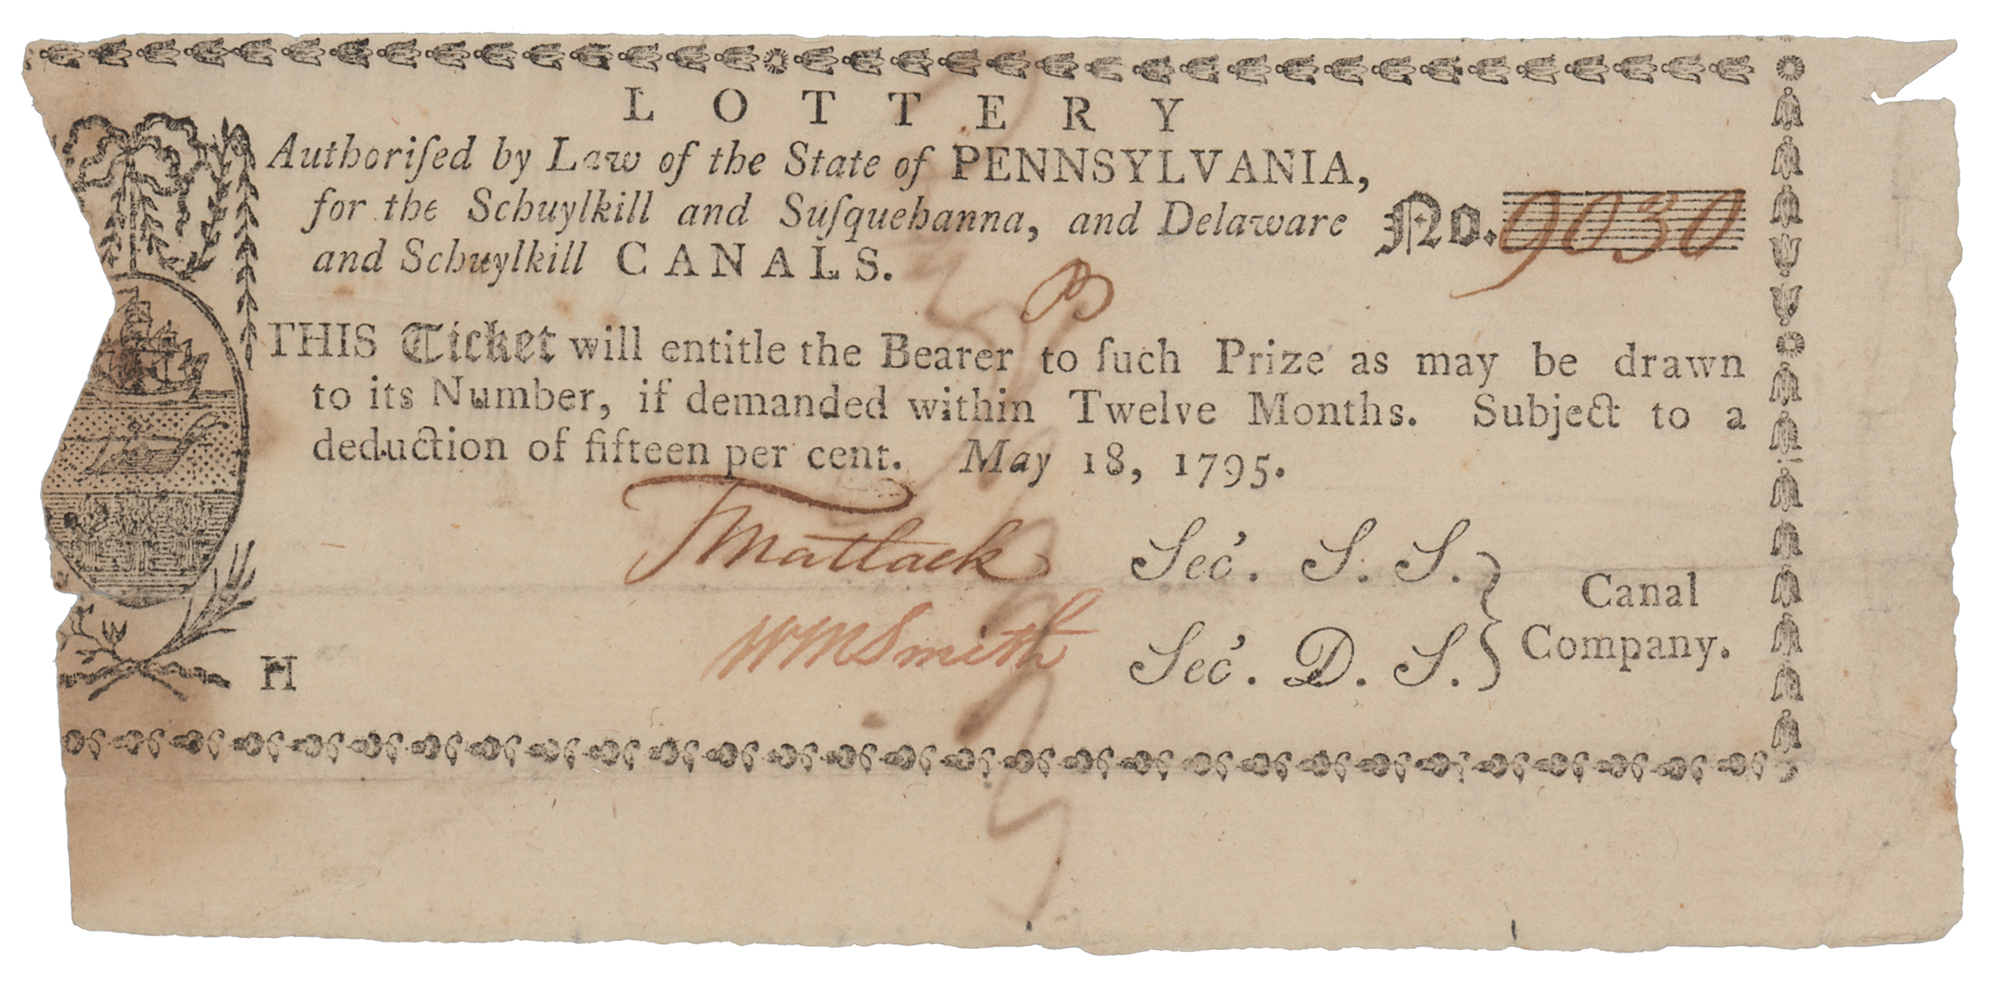 LOTTERY
Authoriſed by Law of the State of PENNSYLVANIA,
for the Schuylkill and Suſquehanna, and Delaware
and Schuylkill CANALS.
No. 9030
B
THIS Ticket will entitle the Bearer to ſuch Prize as may be drawn
to its Number, if demanded within Twelve Months. Subject to a
deduction of fifteen per cent. May 18, 1795.
TMatlack Sec'. S. S.
Canal
WMSmith Sec'. D. S.
Company.
H